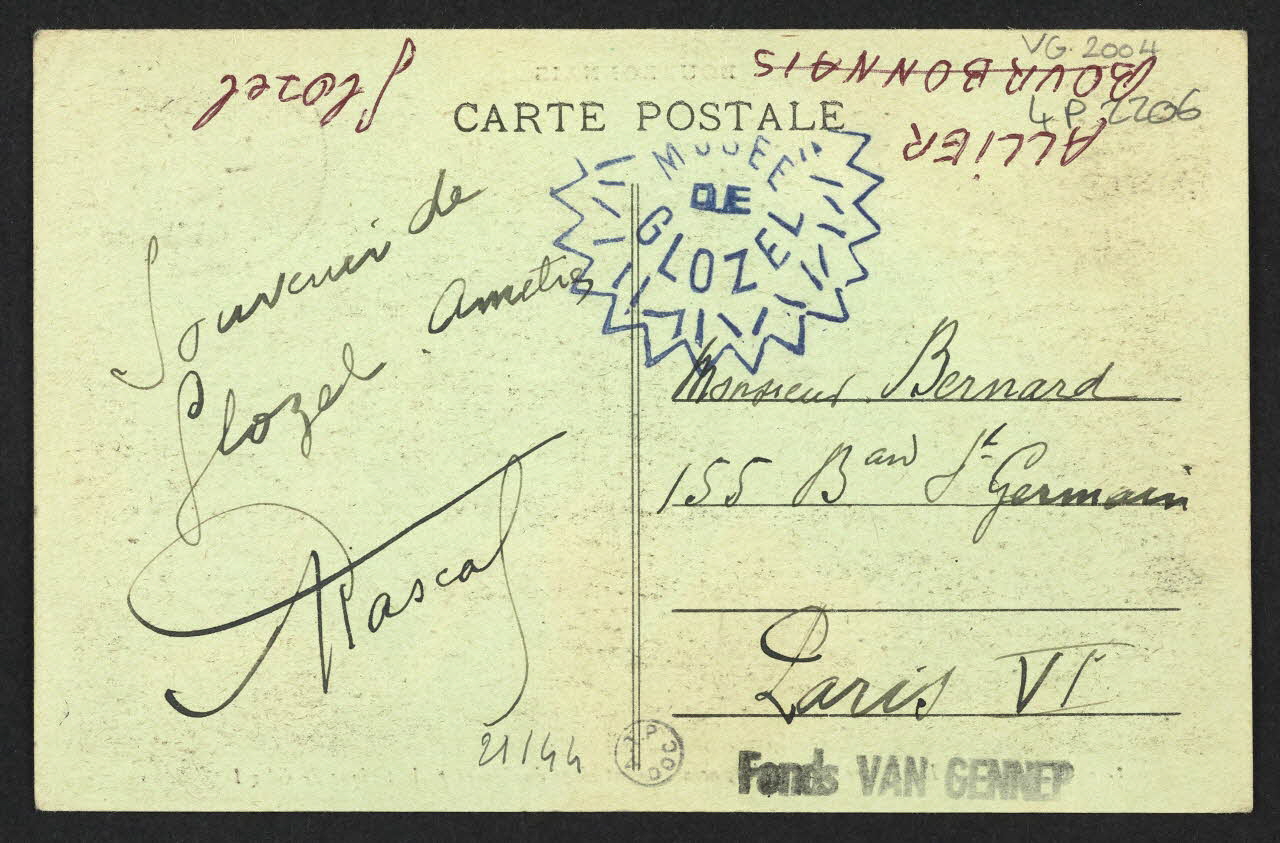 VG. 2004
4 P 2206
BOURBONNAIS
ALLIER
Glozel
CARTE POSTALE
MUSEE
DE
GLOZEL
Souvenir de
Glozel. Amitiés
Pascal
Monsieur Bernard
155 Bard St Germain
Paris VI
21/44
Fonds VAN GENNEP